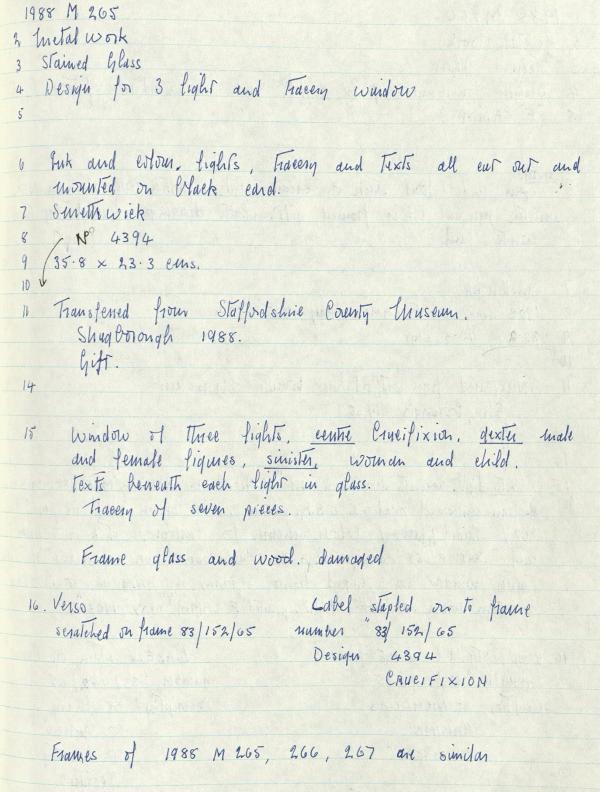 1988 M 265
2 Metalwork
3 Stained Glass
4 Design for 3 light and Tracery window
5
6 Ink and colour. lights, Tracery and Texts all cut out and
mounted on black card.
7 Smethwick
8 No 4394
9 35.8 x 23.3 cms.
10
11 Transferred from Staffordshire County Museum.
Shugborough 1988.
Gift.
14
15 Window of three lights, centre Crucifixion, dexter male
and female figures, sinister, woman and child.
Texts beneath each light in glass.
Tracery of seven pieces.
Frame glass and wood. damaged
16. Verso Label stapled on to frame
scratched on frame 83/152/65 number "83/152/65
Design 4394
CRUCIFIXION
Frames of 1988 M 265, 266, 267 are similar